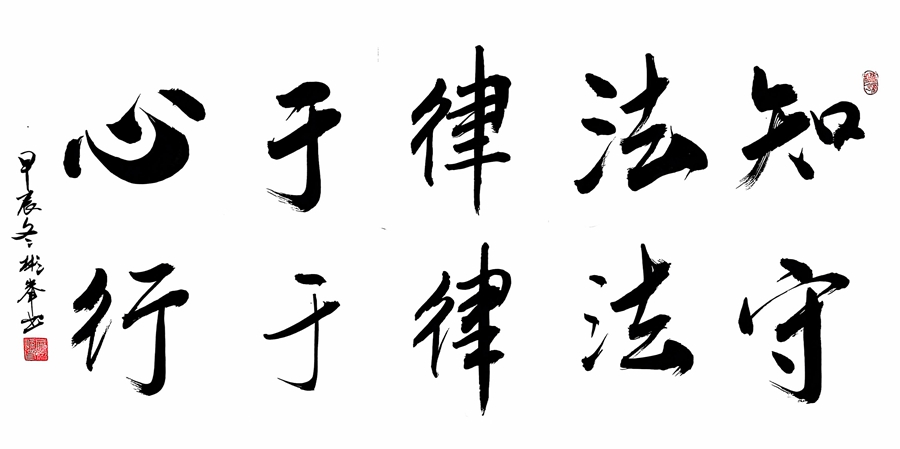 知法律于心
守法律于行
甲辰冬彬